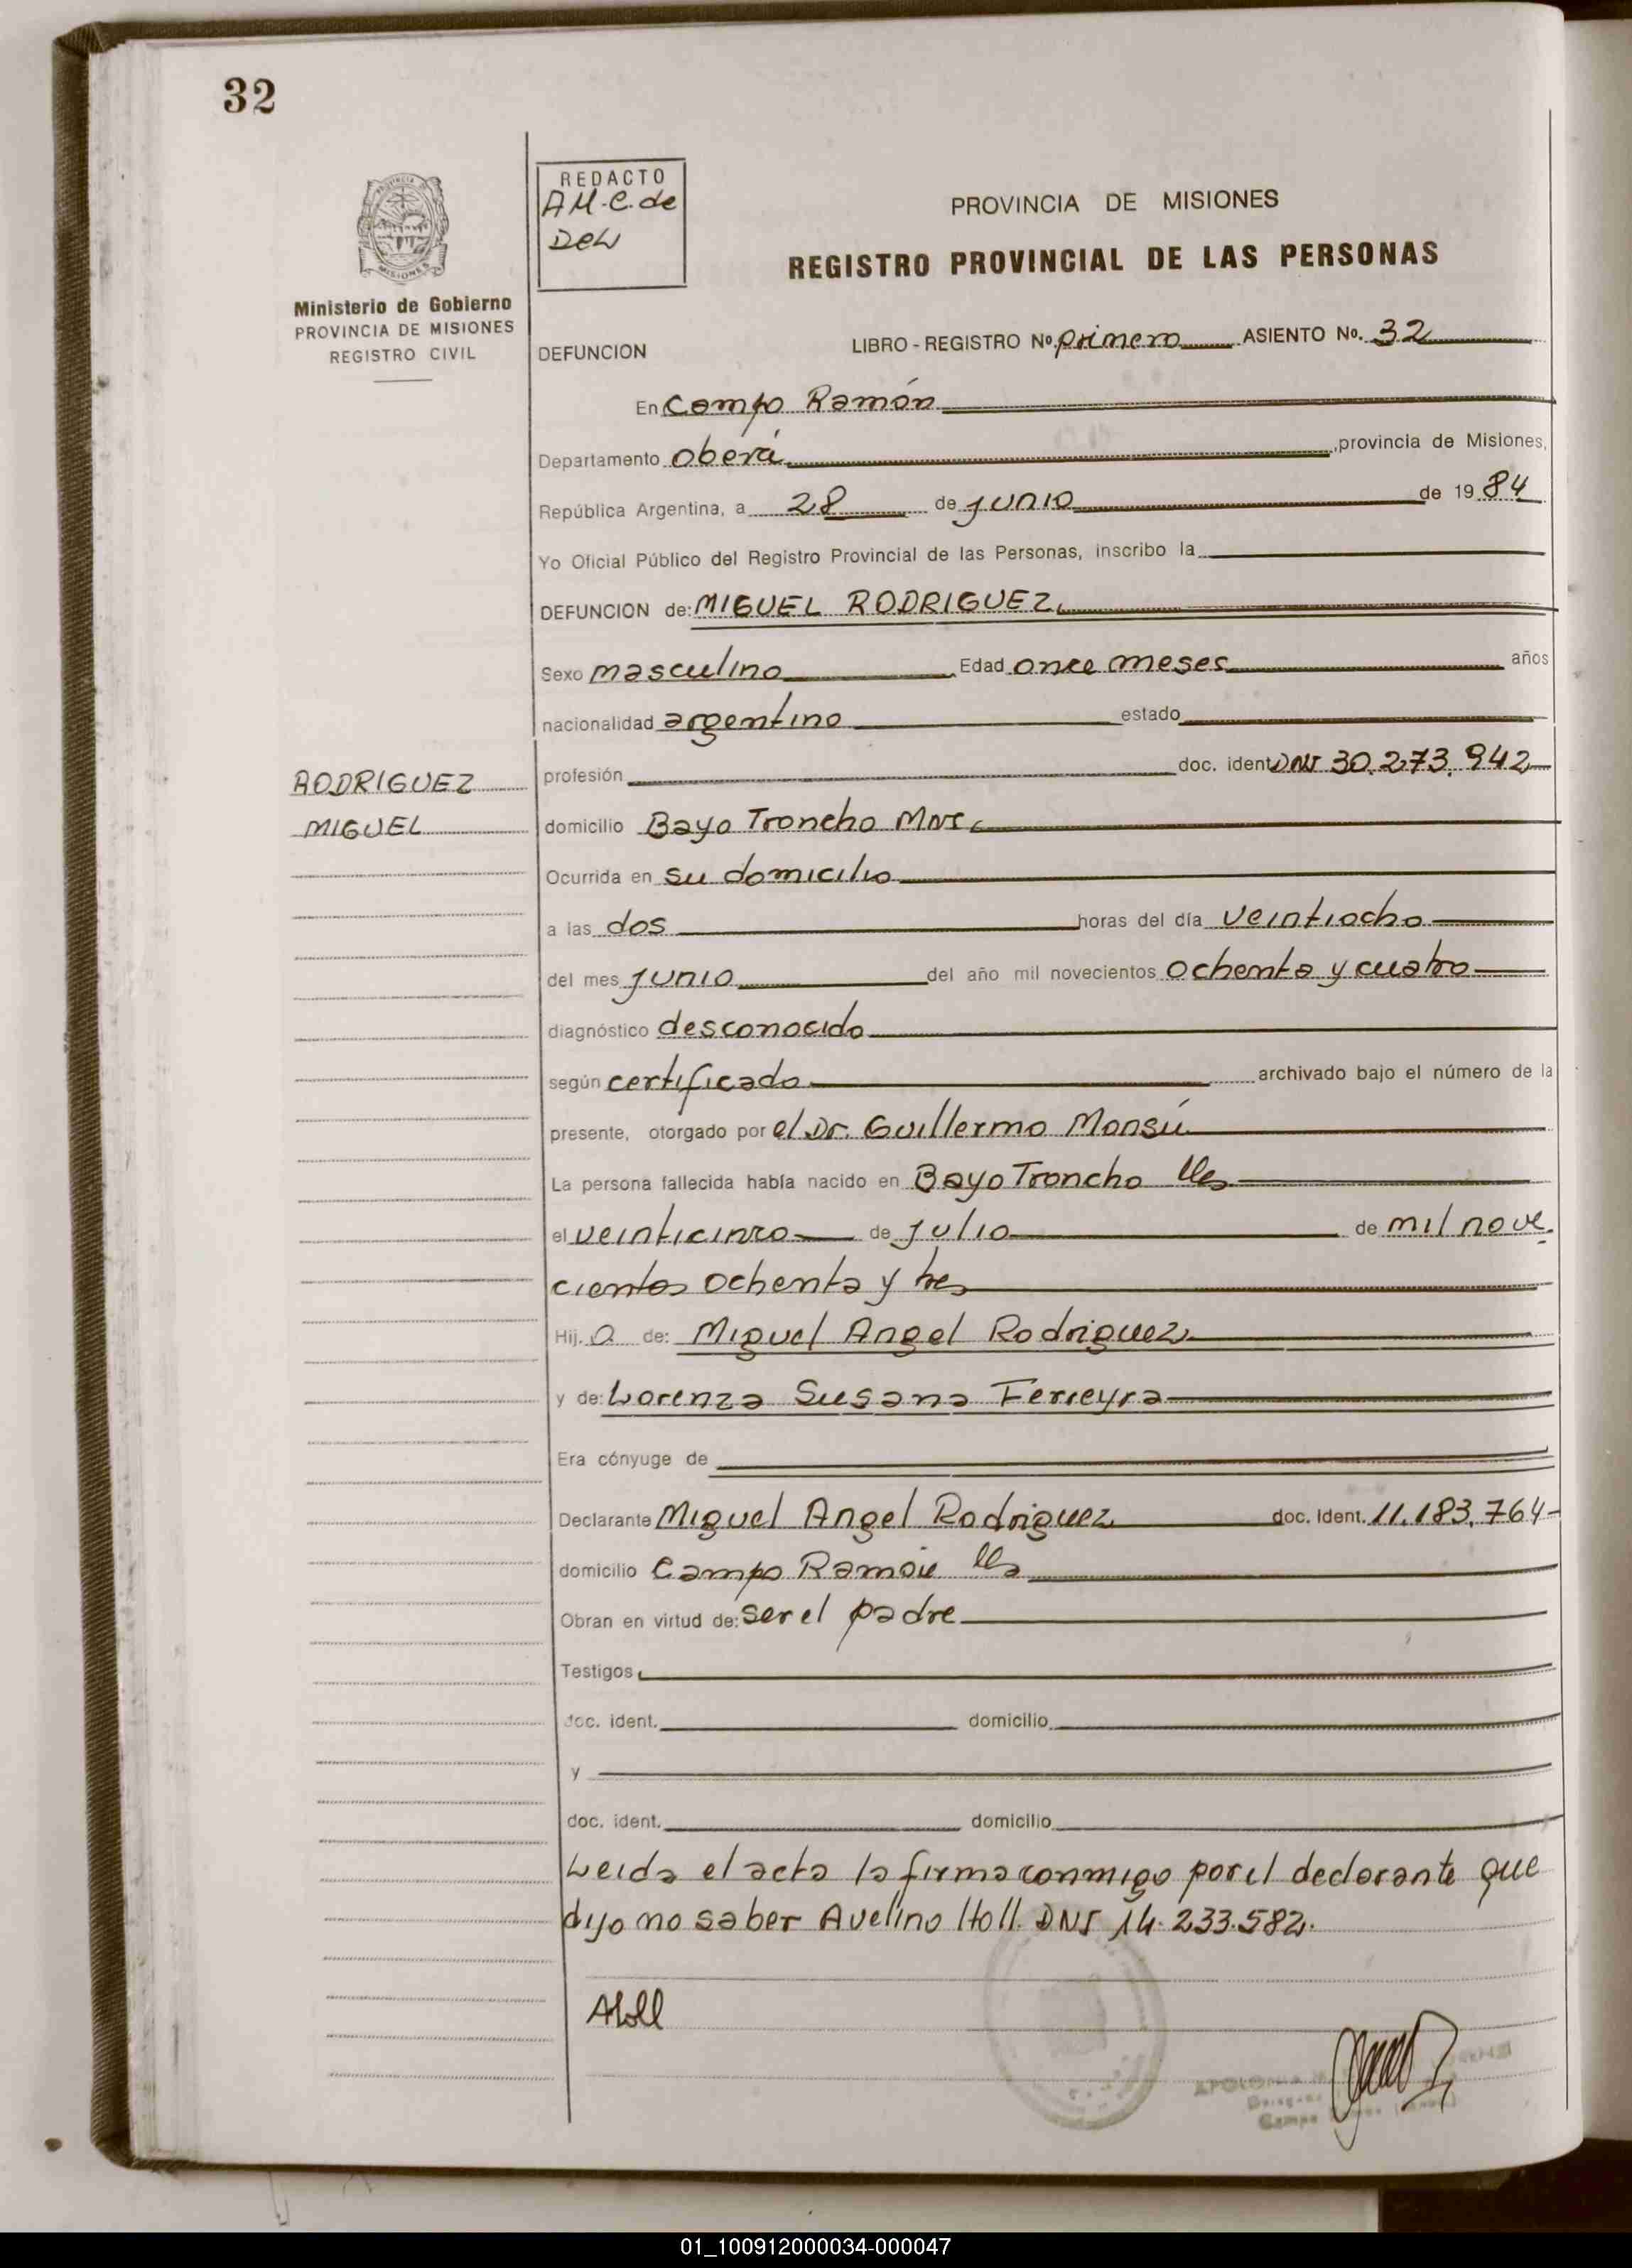 32
REDACTO
A.M.C. de
DeW
PROVINCIA DE MISIONES
REGISTRO PROVINCIAL DE LAS PERSONAS
MISIONES
Ministerio de Gobierno
PROVINCIA DE MISIONES
REGISTRO CIVIL
DEFUNCION LIBRO - REGISTRO Nº primero ASIENTO Nº. 32
En Campo Ramón
Departamento oberá, provincia de Misiones,
República Argentina, a 28 de junio de 1984
Yo Oficial Público del Registro Provincial de las Personas, inscribo la
DEFUNCION de: MIGUEL RODRIGUEZ
Sexo masculino Edad once meses años
nacionalidad argentino estado
RODRIGUEZ
MIGUEL
profesión doc. ident. DNI 30.273.942
domicilio Bayo Troncho Mnes
Ocurrida en su domicilio
a las dos horas del día veintiocho
del mes junio del año mil novecientos ochenta y cuatro
diagnóstico desconocido
según certificado archivado bajo el número de la
presente, otorgado por el Dr. Guillermo Monsú
La persona fallecida había nacido en Bayo Troncho
el veinticinco de julio de mil nove
cientos ochenta y tres
Hij. o de: Miguel Angel Rodriguez
y de: Lorenza Susana Ferreyra
Era cónyuge de
Declarante Miguel Angel Rodriguez doc. Ident. 11.183.764
domicilio Campo Ramón
Obran en virtud de: ser el padre
Testigos
doc. ident. domicilio
y
doc. ident. domicilio
Leida el acta la firma conmigo por el declarante que
dijo no saber Avelino Holl. DNI 14.233.582.
AHoll
01_100912000034-000047